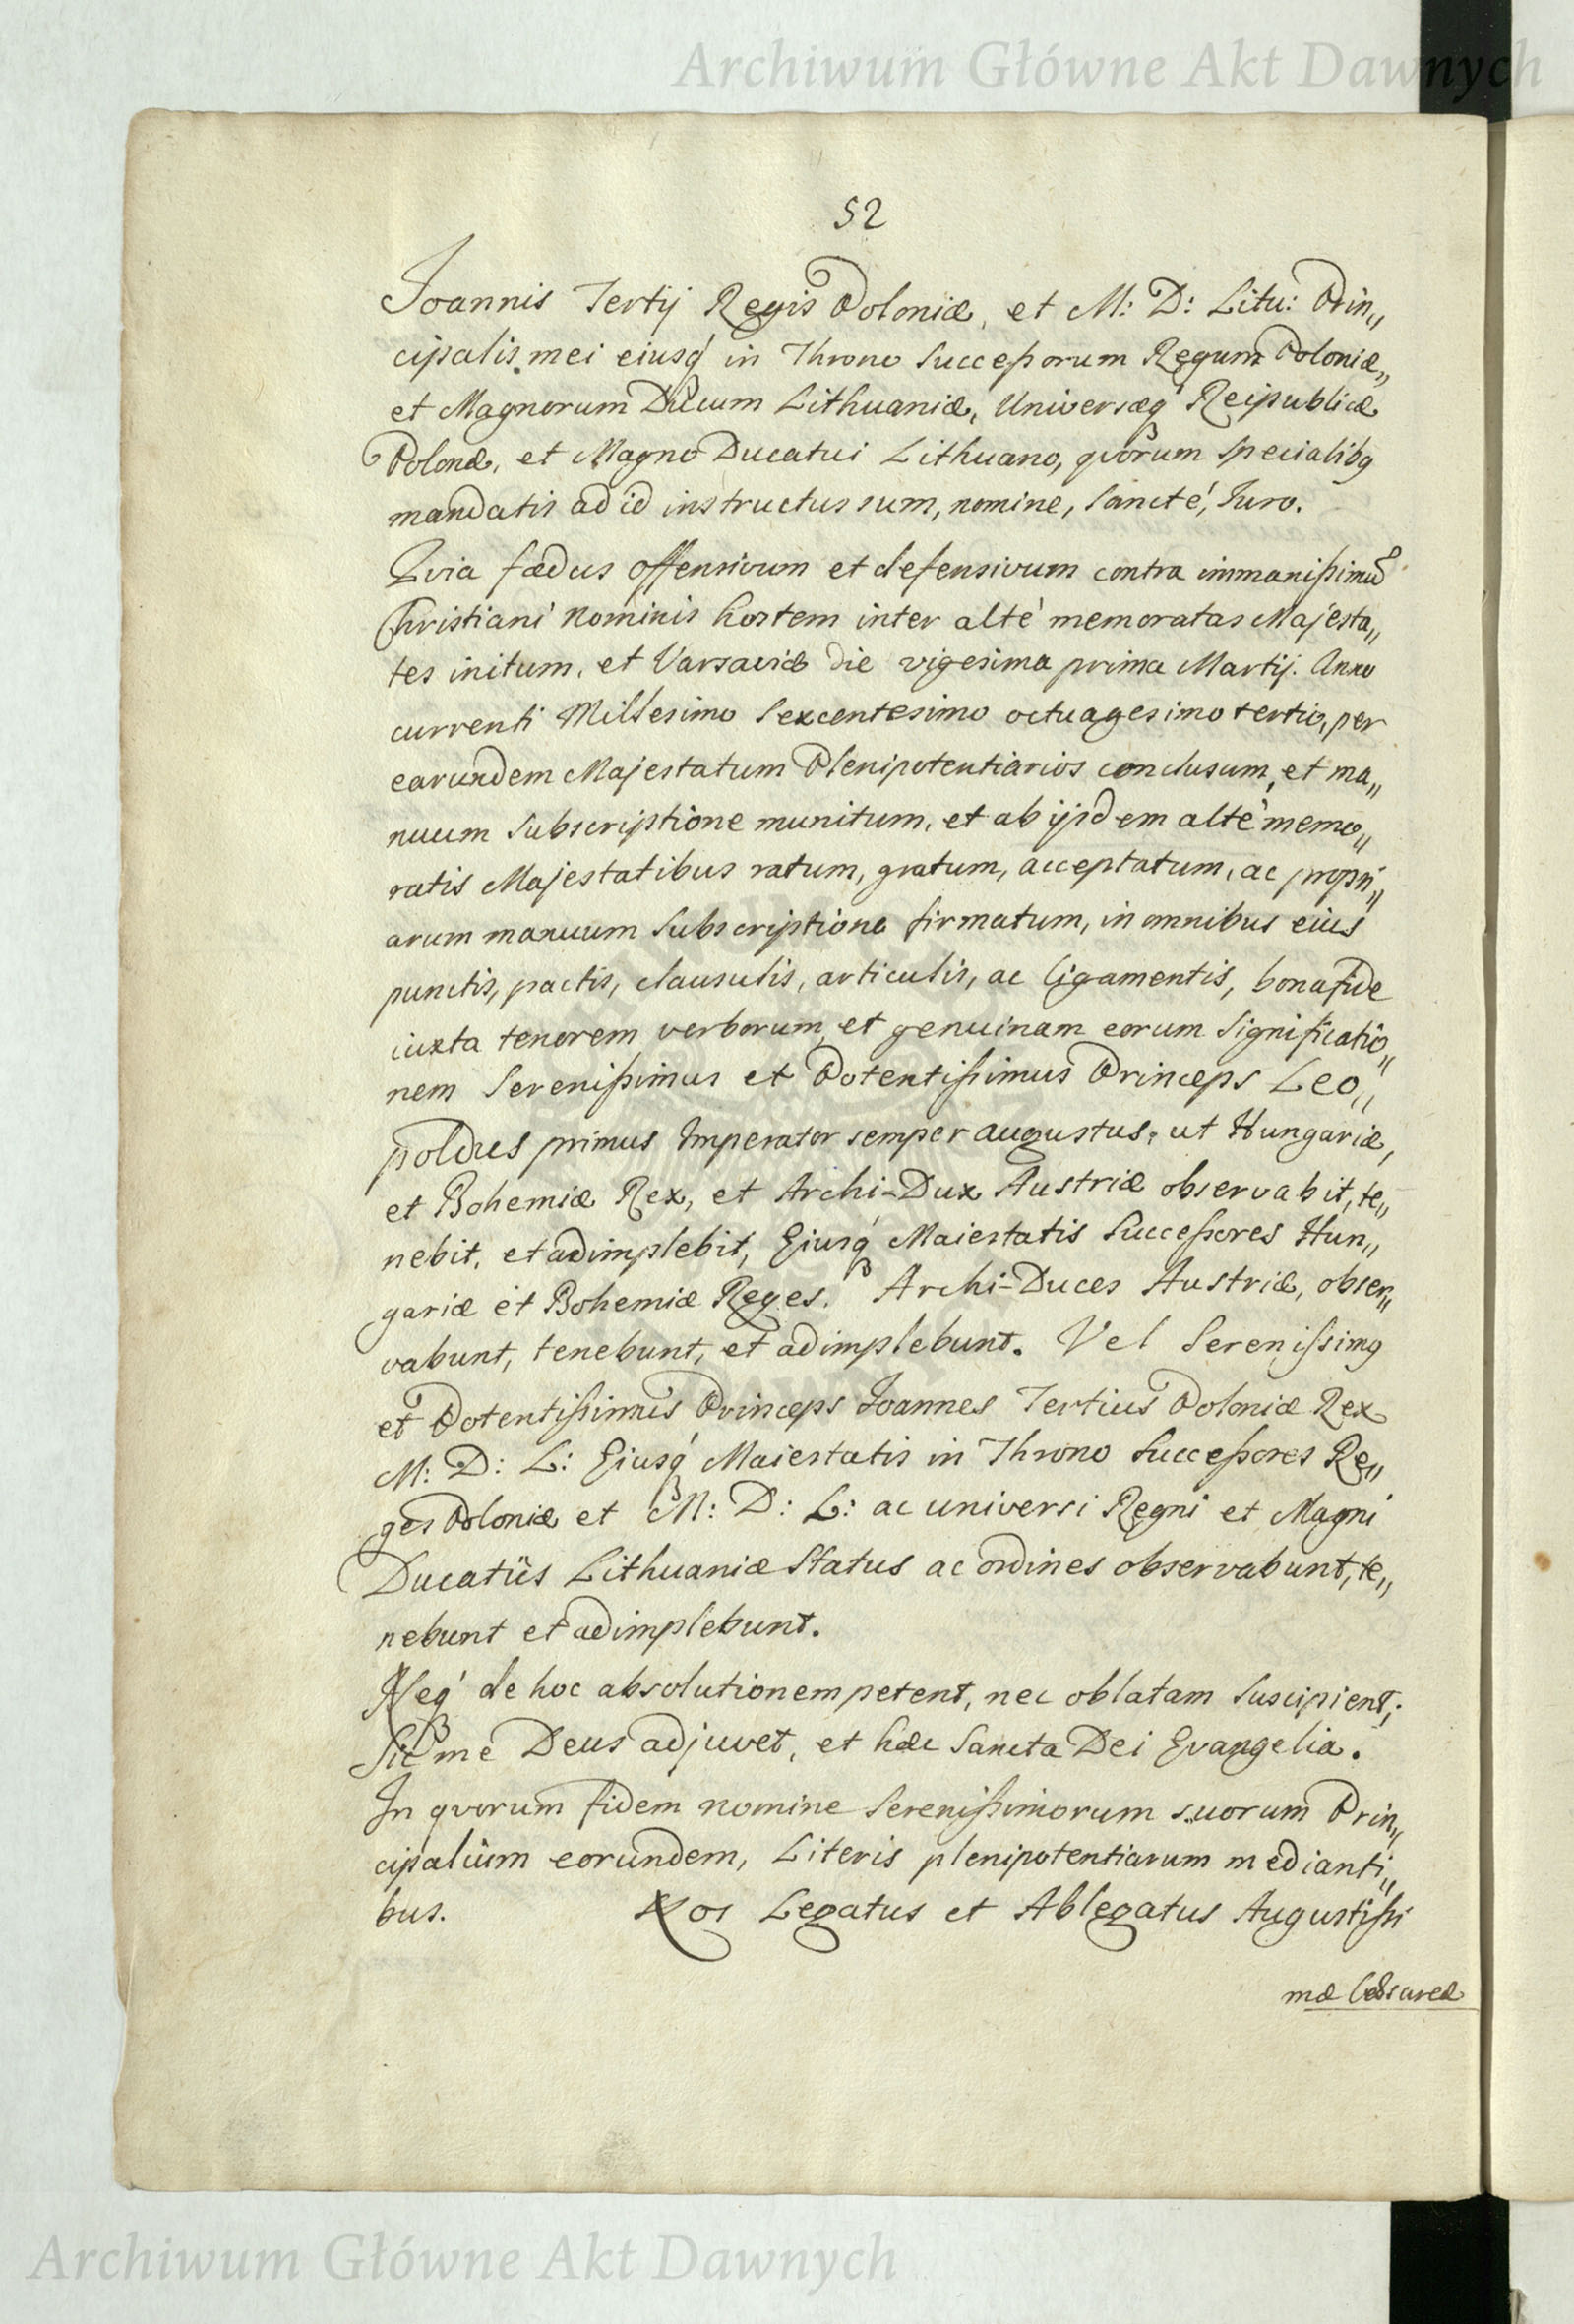 Archiwum Główne Akt Dawnych
52
Joannis Tertij Regis Poloniæ, et M: D: Litu: Prin„
cipalis mei eiusq́ in Throno Succeßorum Regum Poloniæ„
et Magnorum Ducum Lithuaniæ, Universæq́ Reipublicæ
Polonæ, et Magno Ducatui Lithuano, qvorum specialibq
mandatis ad id instructus sum, nomine, Sancté, Juro.
Qvia fædus offensivum et defensivum contra immanißimũ
Christiani Nominis hostem inter altè memoratas Majesta„
tes initum, et Varsaviæ die vigesima prima Martij. Anno
currenti Millesimo Sexcentesimo octuagesimo tertio, per
earundem Majestatum Plenipotentiarios conclusum, et ma„
nuum Subscriptione munitum, et ab ijsdem altè memo„
ratis Majestatibus ratum, gratum, acceptatum, ac propri„
arum manuum Subscriptione firmatum, in omnibus eius
punctis, pactis, clausulis, articulis, ac ligamentis, bona fide
iuxta tenorem verborum, et genuinam eorum Significatio„
nem Serenißimus et Potentißimus Princeps Leo„
poldus primus Imperator semper augustus, ut Hungariæ,
et Bohemiæ Rex, et Archi-Dux Austriæ observabit, te„
nebit, et adimplebit, Eiusq́ Maiestatis Succeßores Hun„
gariæ et Bohemiæ Reges. Archi-Duces Austriæ, obser„
vabunt, tenebunt, et adimplebunt. Vel Serenissimq
et Potentißimus Princeps Joannes Tertius Poloniæ Rex
M: D: L: Eiusq́ Maiestatis in Throno Succeßores Re„
ges Poloniæ et M: D: L: ac universi Regni et Magni
Ducatûs Lithuaniæ Status ac ordines observabunt, te„
nebunt et adimplebunt.
Neq́ de hoc absolutionem petent, nec oblatam Suscipient;
Sic me Deus adjuvet, et hæc Sancta Dei Evangelia.
In qvorum fidem nomine Serenißimorum suorum Prin„
cipalium eorundem, Literis plenipotentiarum medianti„
bus. Nos Legatus et Ablegatus Augustißi
mæ Cæsareæ
Archiwum Główne Akt Dawnych